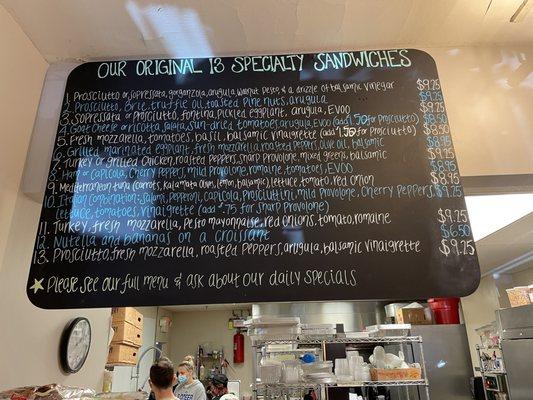 OUR ORIGINAL 13 SPECIALTY SANDWICHES
1. Prosciutto or sopressata, gorgonzola, arugula, walnut pesto, & a drizzle of balsamic vinegar $9.25
2. Prosciutto, Brie, truffle oil, toasted pine nuts, arugula
3. Sopressata or prosciutto, fontina, pickled eggplant, arugula, EVOO
4. Goat cheese or ricotta salata, sun-dried tomatoes, arugula, EVOO (add 1.50 for Prosciutto) $8.50
5. Fresh mozzarella, tomatoes, basil, balsamic vinaigrette (add 1.50 for Prosciutto)
6. Grilled marinated eggplant, fresh mozzarella, roasted peppers, olive oil, balsamic
7. Turkey or grilled chicken, roasted peppers, sharp provolone, mixed greens, balsamic
8. Ham or capicola, cherry peppers, mild provolone, romaine, tomatoes, EVOO
9. Mediterranean tuna (carrots, kalamata olives, lemon, balsamic), lettuce, tomato, red onion
10. Italian Combination: Salami, pepperoni, capicola, prosciuttini, mild provolone, cherry peppers, $9.25
lettuce, tomatoes, vinaigrette (add .75 for sharp provolone)
11. Turkey, fresh mozzarella, pesto mayonnaise, red onions, tomato, romaine $9.25
12. Nutella and bananas on a croissant $6.50
13. Prosciutto, fresh mozzarella, roasted peppers, arugula, balsamic vinaigrette $9.25
Please see our full menu & ask about our daily specials